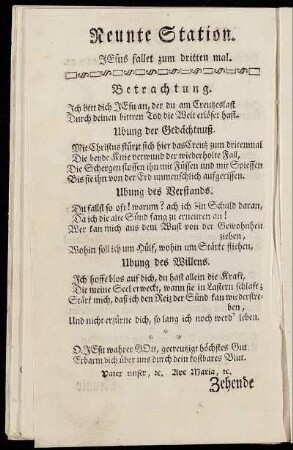 Neunte Station.
JEsus fallet zum dritten mal.
Betrachtung.
Ich bitt dich JEsu an, der du am Creutzeslast
Durch deinen bittren Tod die Welt erlöset hast.
Ubung der Gedächtnuß.
Mit Christus stürzt sich hier das Creutz zum drittenmal
Die beyde Knie verwund der wiederholte Fall,
Die Schergen stossen ihn mit Füssen und mit Spiessen
Bis sie ihn von der Erd unmenschlich aufgerissen.
Ubung des Verstands.
Du fallst so oft! warum? ach ich bin Schuld daran,
Da ich die alte Sünd fang zu erneuren an!
Wer kan mich aus dem Wust von der Gewohnheit
ziehen,
Wohin soll ich um Hülf, wohin um Stärke fliehen,
Ubung des Willens.
Ich hoffe blos auf dich, du hast allein die Kraft,
Die meine Seel erweckt, wann sie in Lastern schlaft;
Stärk mich, daß ich den Reiz der Sünd kan wiederstre-
ben,
Und nicht erzürne dich, so lang ich noch werd leben.
O JEsu wahrer GOtt, gecreutzigt höchstes Gut
Erbarm dich über uns durch dein kostbares Blut.
Pater unser, ꝛc. Ave Maria, ꝛc.
Zehende